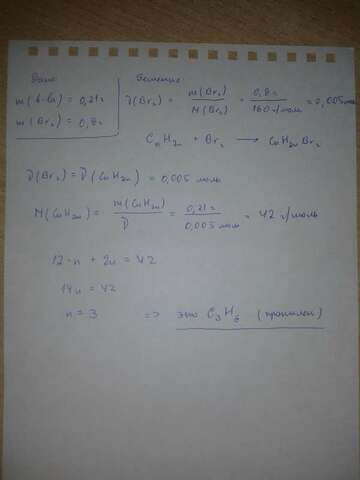 Дано:
Решение:
m(в-ва) = 0,21г
m(Br₂) = 0,8г
ν(Br₂) = m(Br₂) / M(Br₂) = 0,8г / 160 г/моль = 0,005 моль
CₙH₂ₙ + Br₂ → CₙH₂ₙBr₂
ν(Br₂) = ν(CₙH₂ₙ) = 0,005 моль
M(CₙH₂ₙ) = m(CₙH₂ₙ) / ν = 0,21г / 0,005 моль = 42 г/моль
12·n + 2n = 42
14n = 42
n = 3 => это C₃H₆ (пропилен)